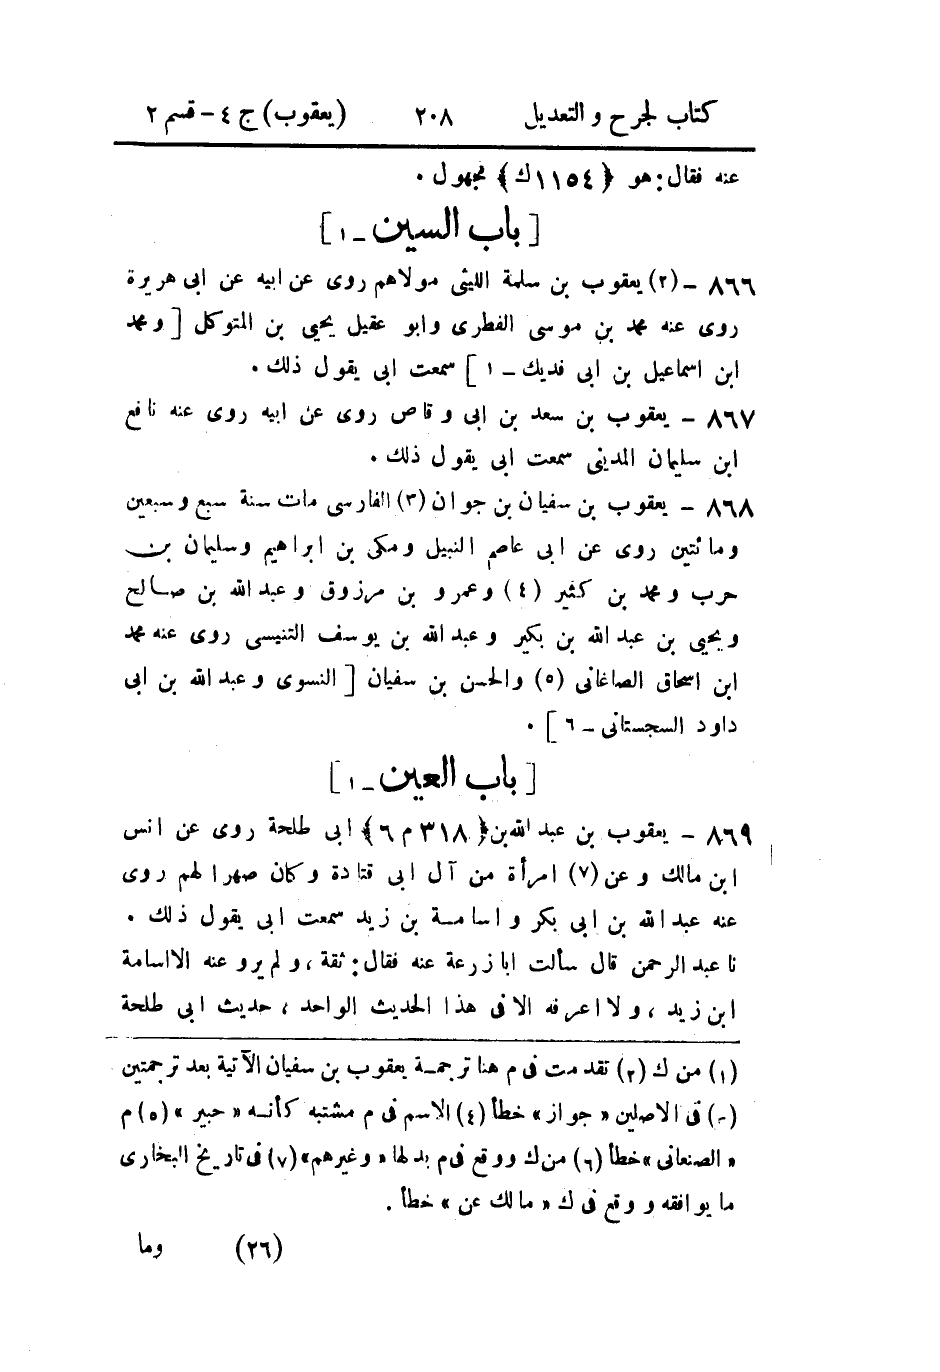 كتاب لجرح والتعديل ٢٠٨ (يعقوب) ج ٤ - قسم ٢
عنه فقال: هو ﴿١١٥٤ك﴾ مجهول .
[ باب السين - ١ ]
٨٦٦ - (٢) يعقوب بن سلمة الليثى مولاهم روى عن ابيه عن ابى هريرة
روى عنه محمد بن موسى الفطرى وابو عقيل يحيى بن المتوكل [ ومحمد
ابن اسماعيل بن ابى فديك - ١ ] سمعت ابى يقول ذلك .
٨٦٧ - يعقوب بن سعد بن ابى وقاص روى عن ابيه روى عنه نافع
ابن سليمان المدينى سمعت ابى يقول ذلك .
٨٦٨ - يعقوب بن سفيان بن جوان (٣) الفارسى مات سنة سبع وسبعين
ومائتين روى عن ابى عاصم النبيل ومكى بن ابراهيم وسليمان بن
حرب ومحمد بن كثير (٤) وعمرو بن مرزوق وعبد الله بن صالح
ويحيى بن عبد الله بن بكير وعبد الله بن يوسف التنيسى روى عنه محمد
ابن اسحاق الصاغانى (٥) والحسن بن سفيان [ النسوى وعبد الله بن ابى
داود السجستانى - ٦ ] .
[ باب العين - ١ ]
٨٦٩ - يعقوب بن عبد الله بن ﴿٣١٨ م ٦﴾ ابى طلحة روى عن انس
ابن مالك وعن (٧) امرأة من آل ابى قتادة وكان صهرا لهم روى
عنه عبد الله بن ابى بكر واسامة بن زيد سمعت ابى يقول ذلك .
نا عبد الرحمن قال سألت ابا زرعة عنه فقال: ثقة ، ولم يرو عنه الا اسامة
ابن زيد ، ولا اعرفه الا فى هذا الحديث الواحد ، حديث ابى طلحة
(١) من ك (٢) تقدمت فى م هنا ترجمة يعقوب بن سفيان الآتية بعد ترجمتين
(-) فى الاصلين « جواز » خطأ (٤) الاسم فى م مشتبه كأنه « حبير » (٥) م
« الصنعانى » خطأ (٦) من ك ووقع فى م بدلها « وغيرهم » (٧) فى تاريخ البخارى
ما يوافقه ووقع فى ك « مالك عن » خطأ .
(٢٦) وما